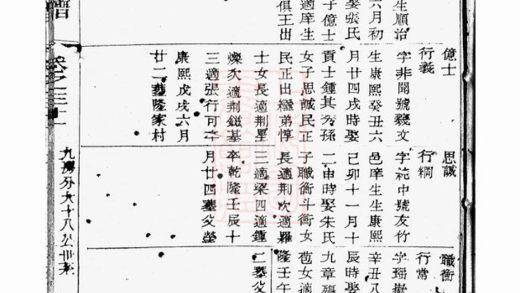 生順治
六月初
娶張氏
子億士
適庠生
俱王出
億士
行義
字非聞號毅文
生康熙癸丑六
月廿四戌時娶
貢士鍾其秀孫
女子思誠民正
民正出繼弟惇
士女長適荆星
燦次適荆鎡基
三適張行可卒
康熙戊戌六月
廿二葬隆家村
思誠
行綱
字中號友竹
邑庠生生康熙
己卯十一月十
二申時娶朱氏
子職衡斗衡女
長適荆次適羅
三適梁四適鍾
卒乾隆壬辰十
月廿四葬父塋
職衡
行常
字瑶
辛丑八
辰時娶
九章孫
苞女適
隆壬午
二葬父
譜
卷之三十一
九灣分大十八公世系